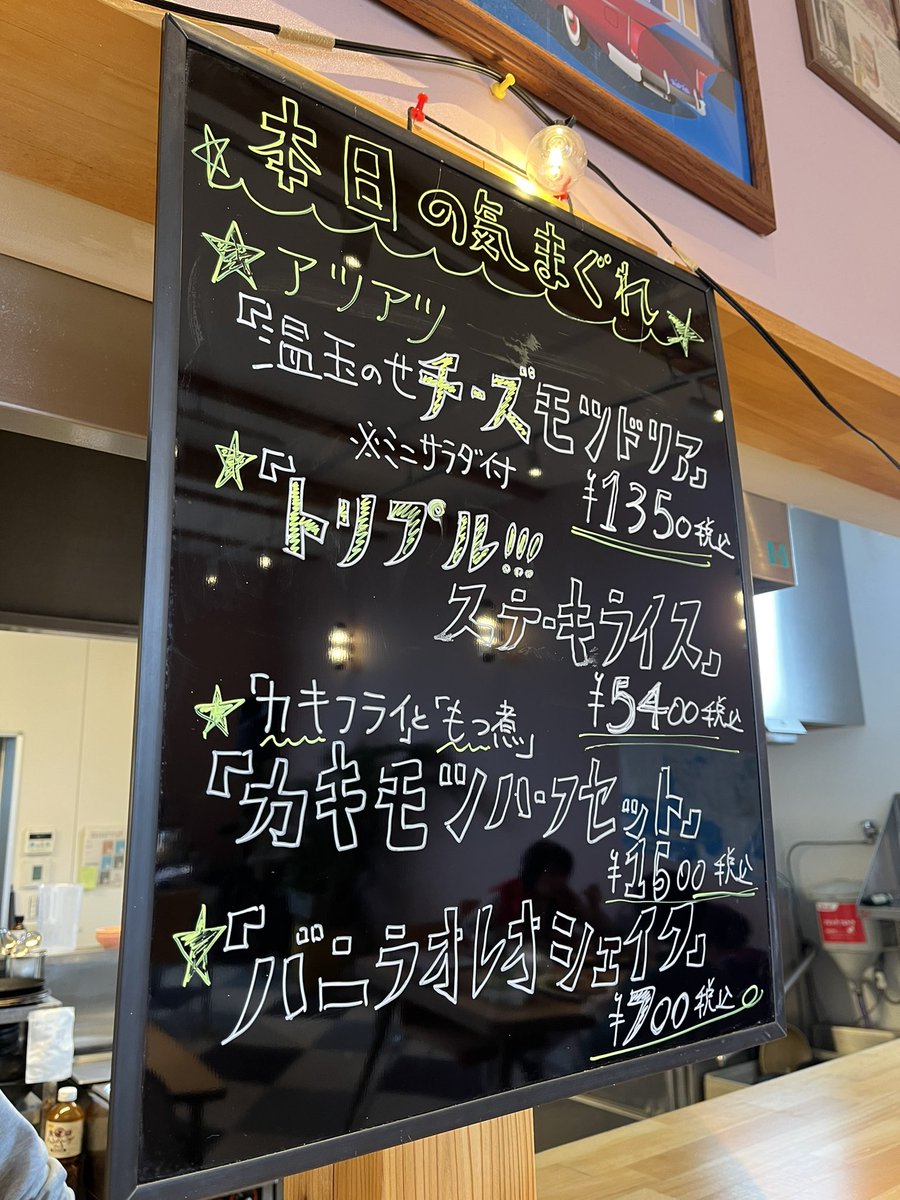 本日の気まぐれ
アツアツ
「温玉のせチーズモツドリア」
※ミニサラダ付
¥1350税込
「トリプル!!!
ステーキライス」
¥5400税込
「カキフライ」と「もつ煮」
「カキモツハーフセット」
¥1500税込
「バニラオレオシェイク」
¥700税込